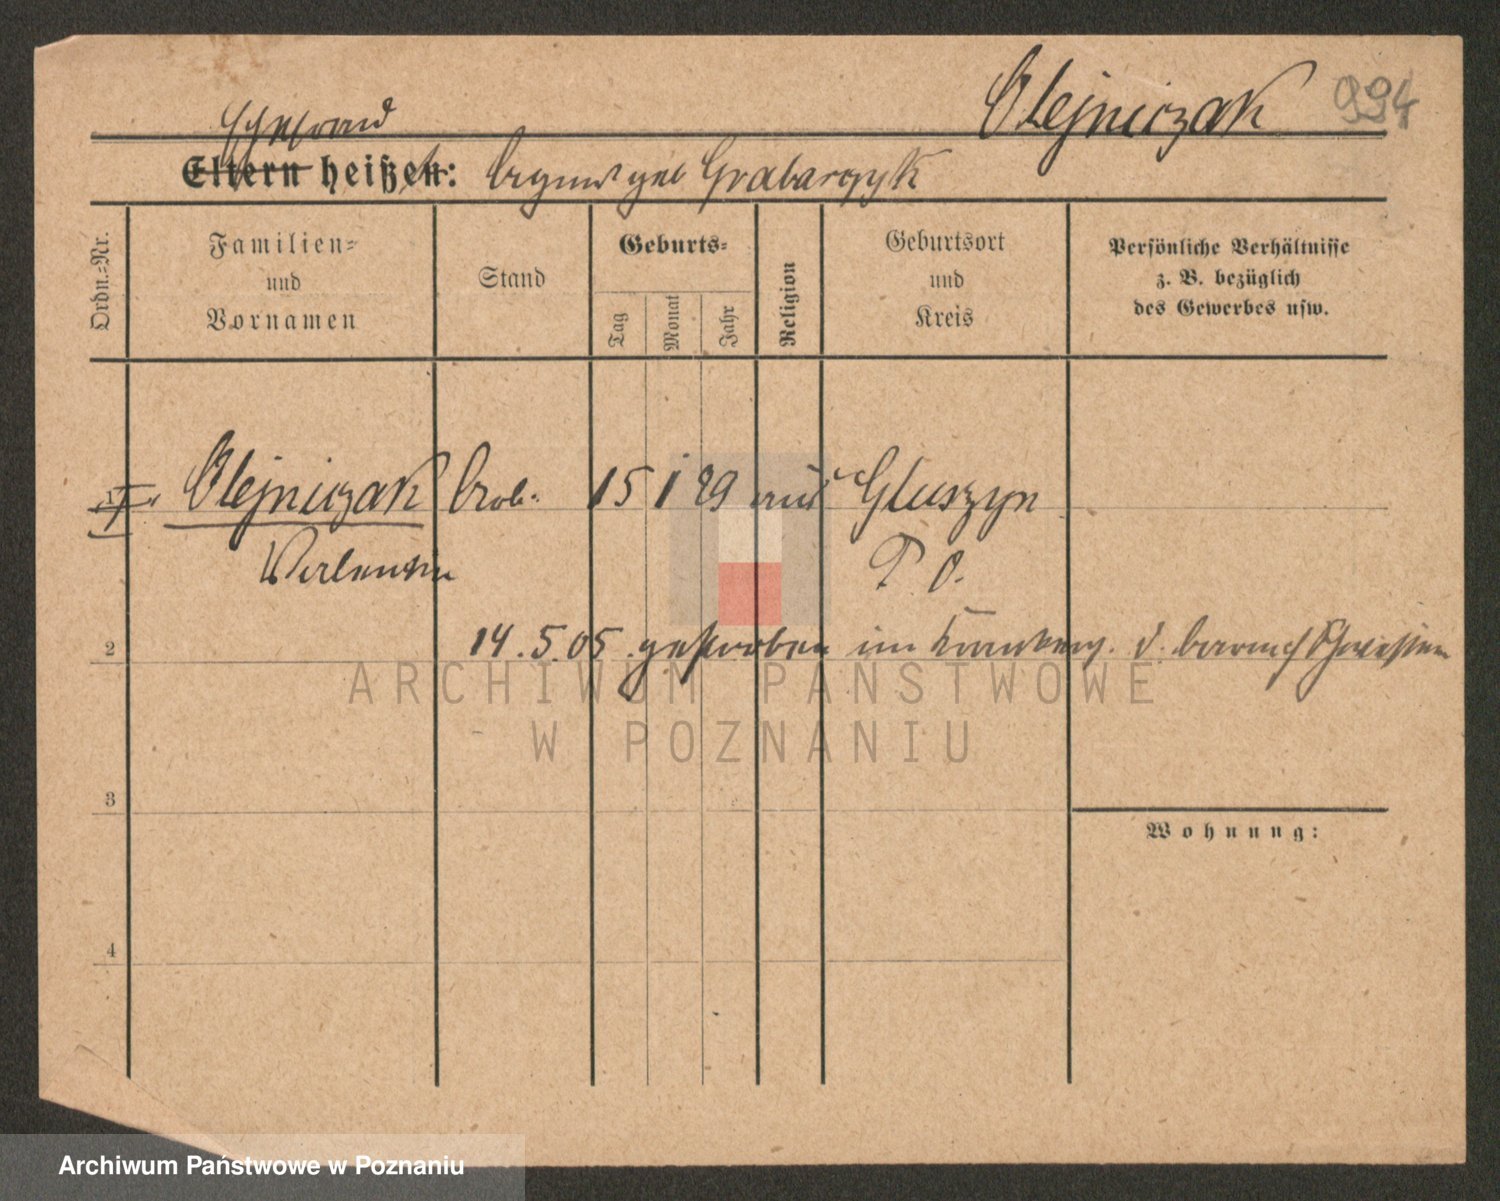 Olejniczak 994
Ehefrau
Eltern heißen: geb Grabarczyk
Ordn.-Nr.
Familien-
und
Vornamen
Stand
Geburts-
Tag
Monat
Jahr
Religion
Geburtsort
und
Kreis
Persönliche Verhältnisse
z. B. bezüglich
des Gewerbes usw.
Olejniczak Arb. 15 1 89 aus Gluszyn
Valentin P. O.
2 14.5.05 gestorben im Krankenh. d. barmh Schwestern
ARCHIWUM PAŃSTWOWE
W POZNANIU
3
Wohnung:
4
Archiwum Państwowe w Poznaniu